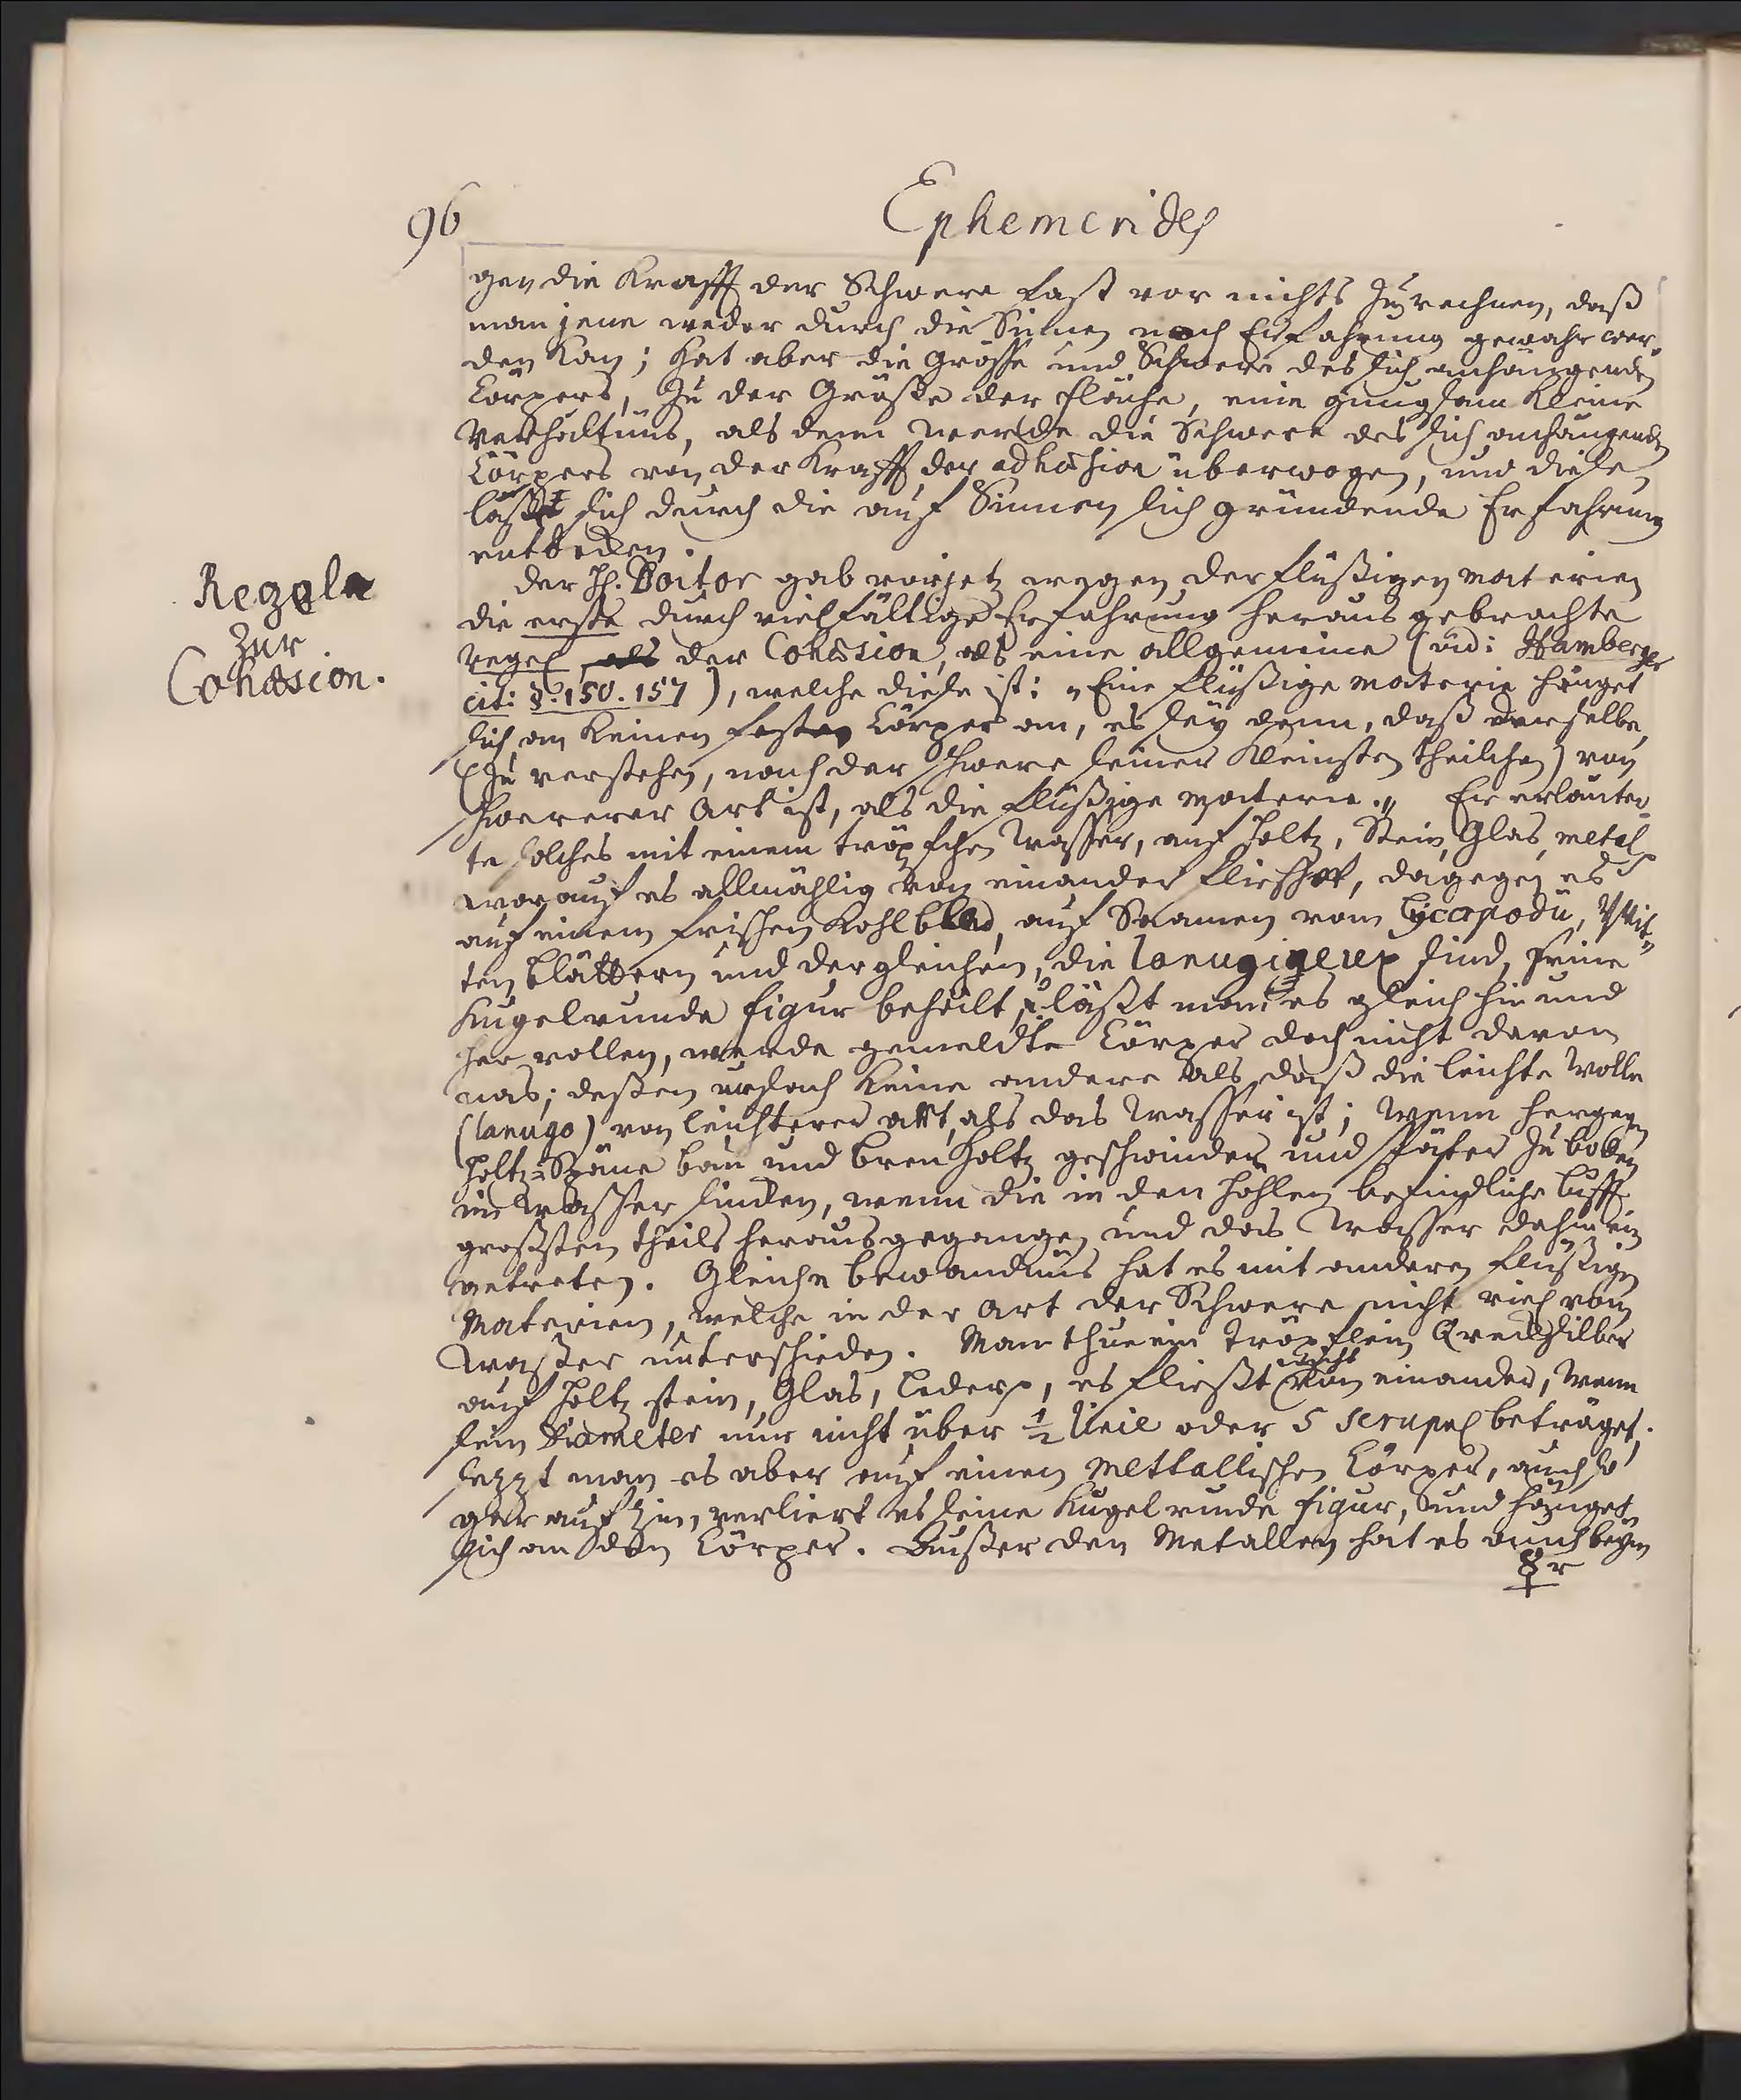 96
Ephemerides
gen die Krafft der Schwere fast vor nichts zu rechnen, daß
man jene weder durch die Sinnen noch Erfahrung gewahr wer„
den kan; hat aber die Grösse und Schwere des sich anhängenden
Cörpers, zu der Grösse der fläche, eine gnugsam kleine
Verhältnüs, als denn werde die Schwere des sich anhängenden
Cörpers von der Krafft der adhæsion überwogen, und diese
läßt sich durch die auf Sinnen sich gründende Erfahrung
entdecken.
Regeln
zur
Cohæsion.
Der H. Doctor gab vorjetz wegen der flüßigen materien
die erste durch vielfältige Erfahrung heraus gebrachte
regel, als der Cohæsion, als eine allgemeine (vid: Hamberger
cit: §. 150. 157), welche diese ist: „Eine flüßige materie hänget
sich an keinen festen Cörper an, es sey denn, daß derselbe,
(zu verstehen, nach der schwere seiner kleinsten theilchen) von
schwererer Art ist, als die flüßige materie.„ Er erläuter„
te solches mit einem tröpfchen Wasser, auf holtz, Stein, Glas, metal
worauf es allmählig von einander fliesset, dagegen es
auf einem frischen Kohlblad, auf Saamen vom Lycopodii,
ten blättern und dergleichen, die lanugigeux sind, seine
Kugelrunde figur behält, u. läßt man es gleich hin und
her rollen, werde gemeldte Cörper doch nicht davon
nas; deßen ursach keine andere als daß die leichte Wolle
(lanugo) von leichterer art, als das Wasser ist; Wenn hergegen
holtz-Späne bau und bren holtz geschwinder und später zu boden
im Wasser sinden, wenn die in den hohlen befindliche lufft
grossten theils herausgegangen und das Wasser dahinein
getreten. Gleiche bewandnüs hat es mit anderen flüßigen
Materien, welche in der Art der Schwere nicht viel vom
Wasser unterschieden. Man thue ein tröpflein Quecksilber
auf holtz stein, Glas, leder, es fließt nicht von einander, wenn
sein Diameter nur nicht über ½ linie oder 5 scrupel beträget.
sezzt man es aber auf einen mettallischen Cörper, auch so
gar auf Zin, verliert es seine Kugelrunde figur, und hänget
sich an den Cörper. Außer den Metallen hat es auch beym
♀r